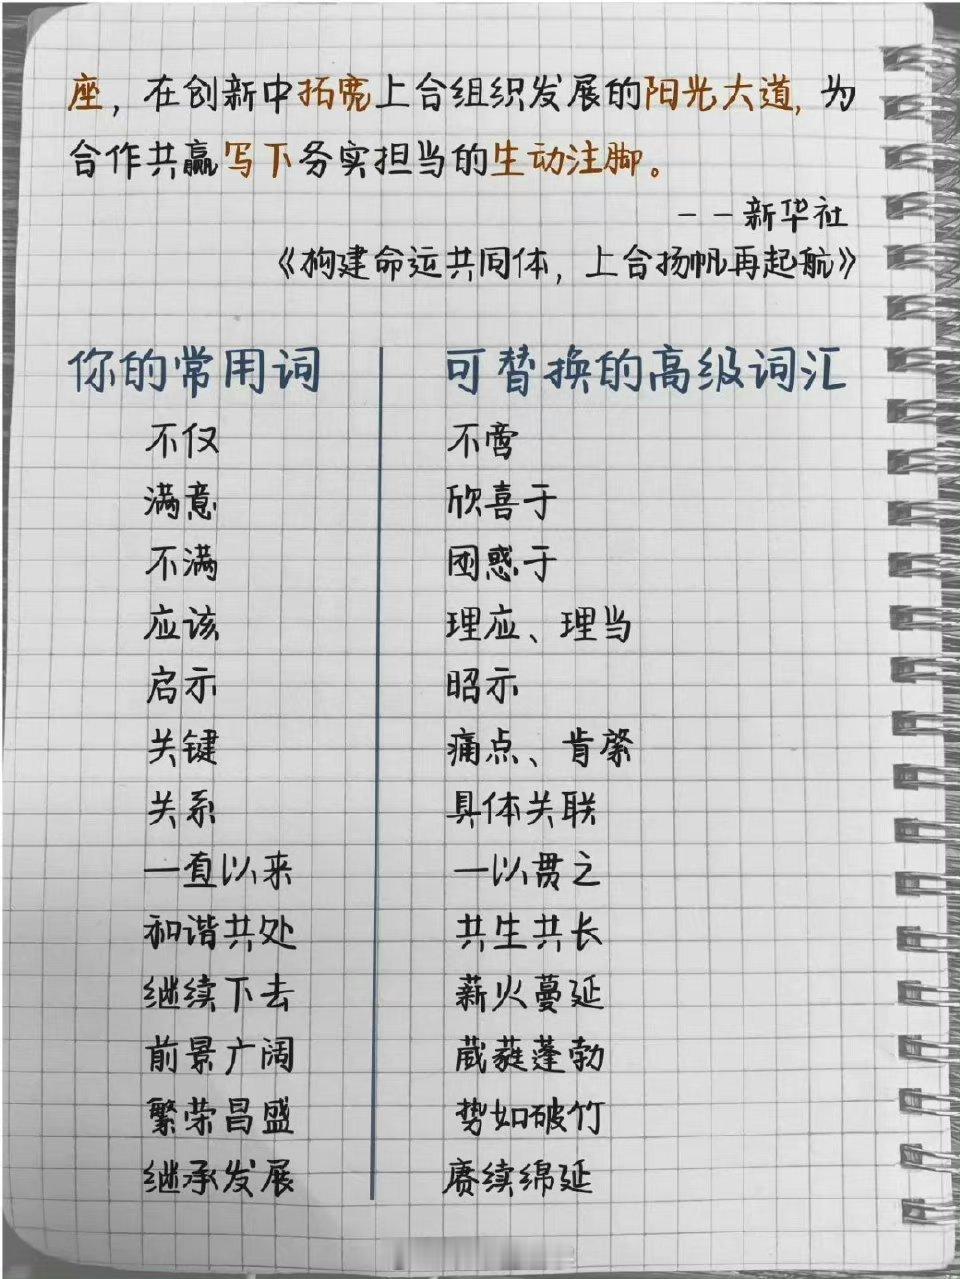 座，在创新中拓宽上合组织发展的阳光大道，为
合作共赢写下务实担当的生动注脚。
——新华社
《构建命运共同体，上合扬帆再起航》
你的常用词 可替换的高级词汇
不仅 不啻
满意 欣喜于
不满 困惑于
应该 理应、理当
启示 昭示
关键 痛点、肯綮
关系 具体关联
一直以来 一以贯之
和谐共处 共生共长
继续下去 薪火蔓延
前景广阔 葳蕤蓬勃
繁荣昌盛 势如破竹
继承发展 赓续绵延